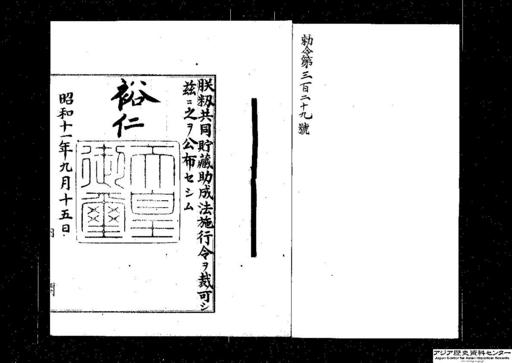 勅令第三百二十九號
朕籾共同貯藏助成法施行令ヲ裁可シ
茲ニ之ヲ公布セシム
裕仁
天皇御璽
昭和十一年九月十五日
アジア歴史資料センター
Japan Center for Asian Historical Records